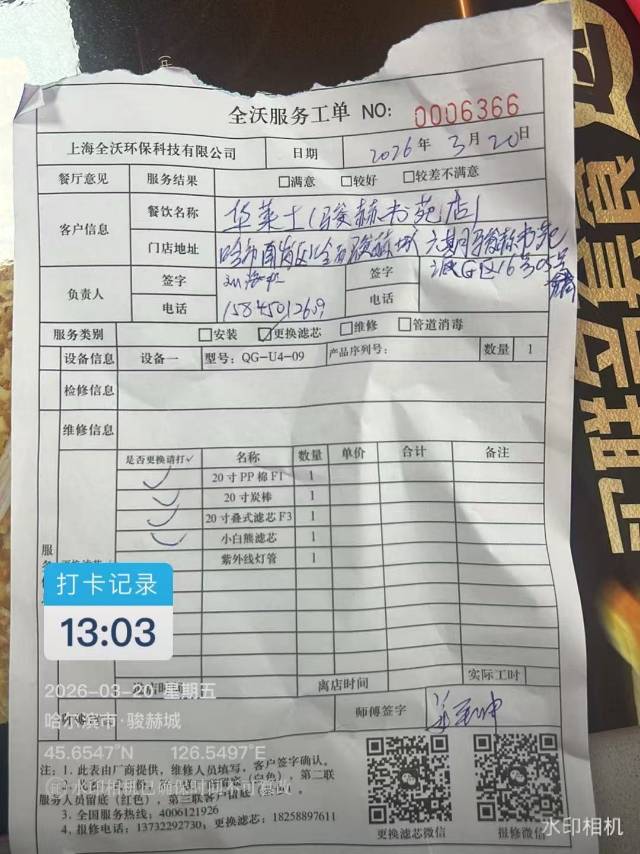 全沃服务工单 NO: 0006366
上海全沃环保科技有限公司 日期 2026年3月20日
餐厅意见 服务结果 □满意 □较好 □较差不满意
客户信息 餐饮名称 华莱士(骏赫书苑店)
门店地址 哈市南岗区 骏赫城 六期骏赫书苑
G区16号
负责人 签字 签字
电话 15845012609 电话
服务类别 □安装 ☑更换滤芯 □维修 □管道消毒
设备信息 设备一 型号: QG-U4-09 产品序列号: 数量 1
检修信息
维修信息
是否更换请打✓ 名称 数量 单价 合计 备注
✓ 20寸PP棉F1 1
✓ 20寸炭棒 1
✓ 20寸叠式滤芯F3 1
✓ 小白熊滤芯 1
紫外线灯管 1
服
打卡记录
13:03
离店时间 实际工时
2026-03-20 星期五
师傅签字
哈尔滨市·骏赫城
45.6547°N 126.5497°E
注: 1. 此表由厂商提供，维修人员填写，客户签字确认。
(白色)，第二联
服务人员留底(红色)，第三联客户留底
水印相机已确保时间不可篡改
3. 全国服务热线: 4006121926
4. 报修电话: 13732292730; 更换滤芯: 18258897611
更换滤芯微信 报修微信
水印相机